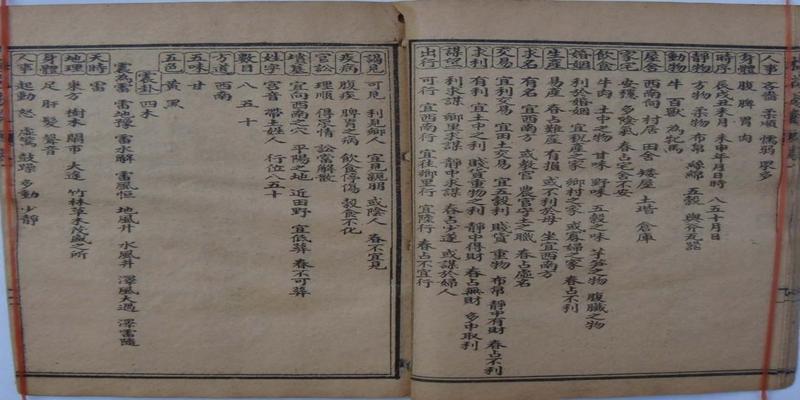 人事 吝嗇 柔順 懦弱 眾多
身體 腹 脾 胃 肉
時序 辰戌丑未月 未申年月日時 八五十月日
靜物 方物 柔物 布帛 絲綿 五穀 輿斧瓦器
動物 牛 百獸 為牝馬
屋舍 西南向 村居 田舍 矮屋 土堦 倉庫
家宅 安穩 多陰氣 春占宅舍不安
飲食 牛肉 土中之物 甘味 野味 五穀之味 芋筍之物 腹臟之物
婚姻 利於婚姻 宜税產之家 鄉村之家 或寡婦之家 春占不利
生產 易產 春占難產 有損 或不利於母 坐宜西南方
求名 有名 宜西南方 或教官 農官守土之職 春占虛名
交易 宜利交易 宜田土交易 宜五穀利 賤貨 重物 布帛 靜中有財 春占不利
求利 有利 宜土中之利 賤貨重物之利 靜中得財 春占無財 多中取利
謀望 利求謀 鄉里求謀 靜中求謀 春占少遂 或謀於婦人
出行 可行 宜西南行 宜往鄉里行 宜陸行 春占不宜行
謁見 可見 利見鄉人 宜見親朋 或陰人 春不宜見
疾病 腹疾 脾胃之病 飲食停傷 穀食不化
官訟 理順 得眾情 訟當解散
墳墓 宜向西南之穴 平陽之地 近田野 宜低葬 春不可葬
姓字 宮音 帶土姓人 行位八五十
數目 八 五 十
方道 西南
五味 甘
五色 黃 黑
震卦 四木
震為雷 雷地豫 雷水解 雷風恒 地風升 水風井 澤風大過 澤雷隨
天時 雷
地理 東方 樹木 鬧市 大途 竹林草木茂盛之所
身體 足 肝 髮 聲音
人事 起動 怒 虛驚 鼓躁 多動少靜